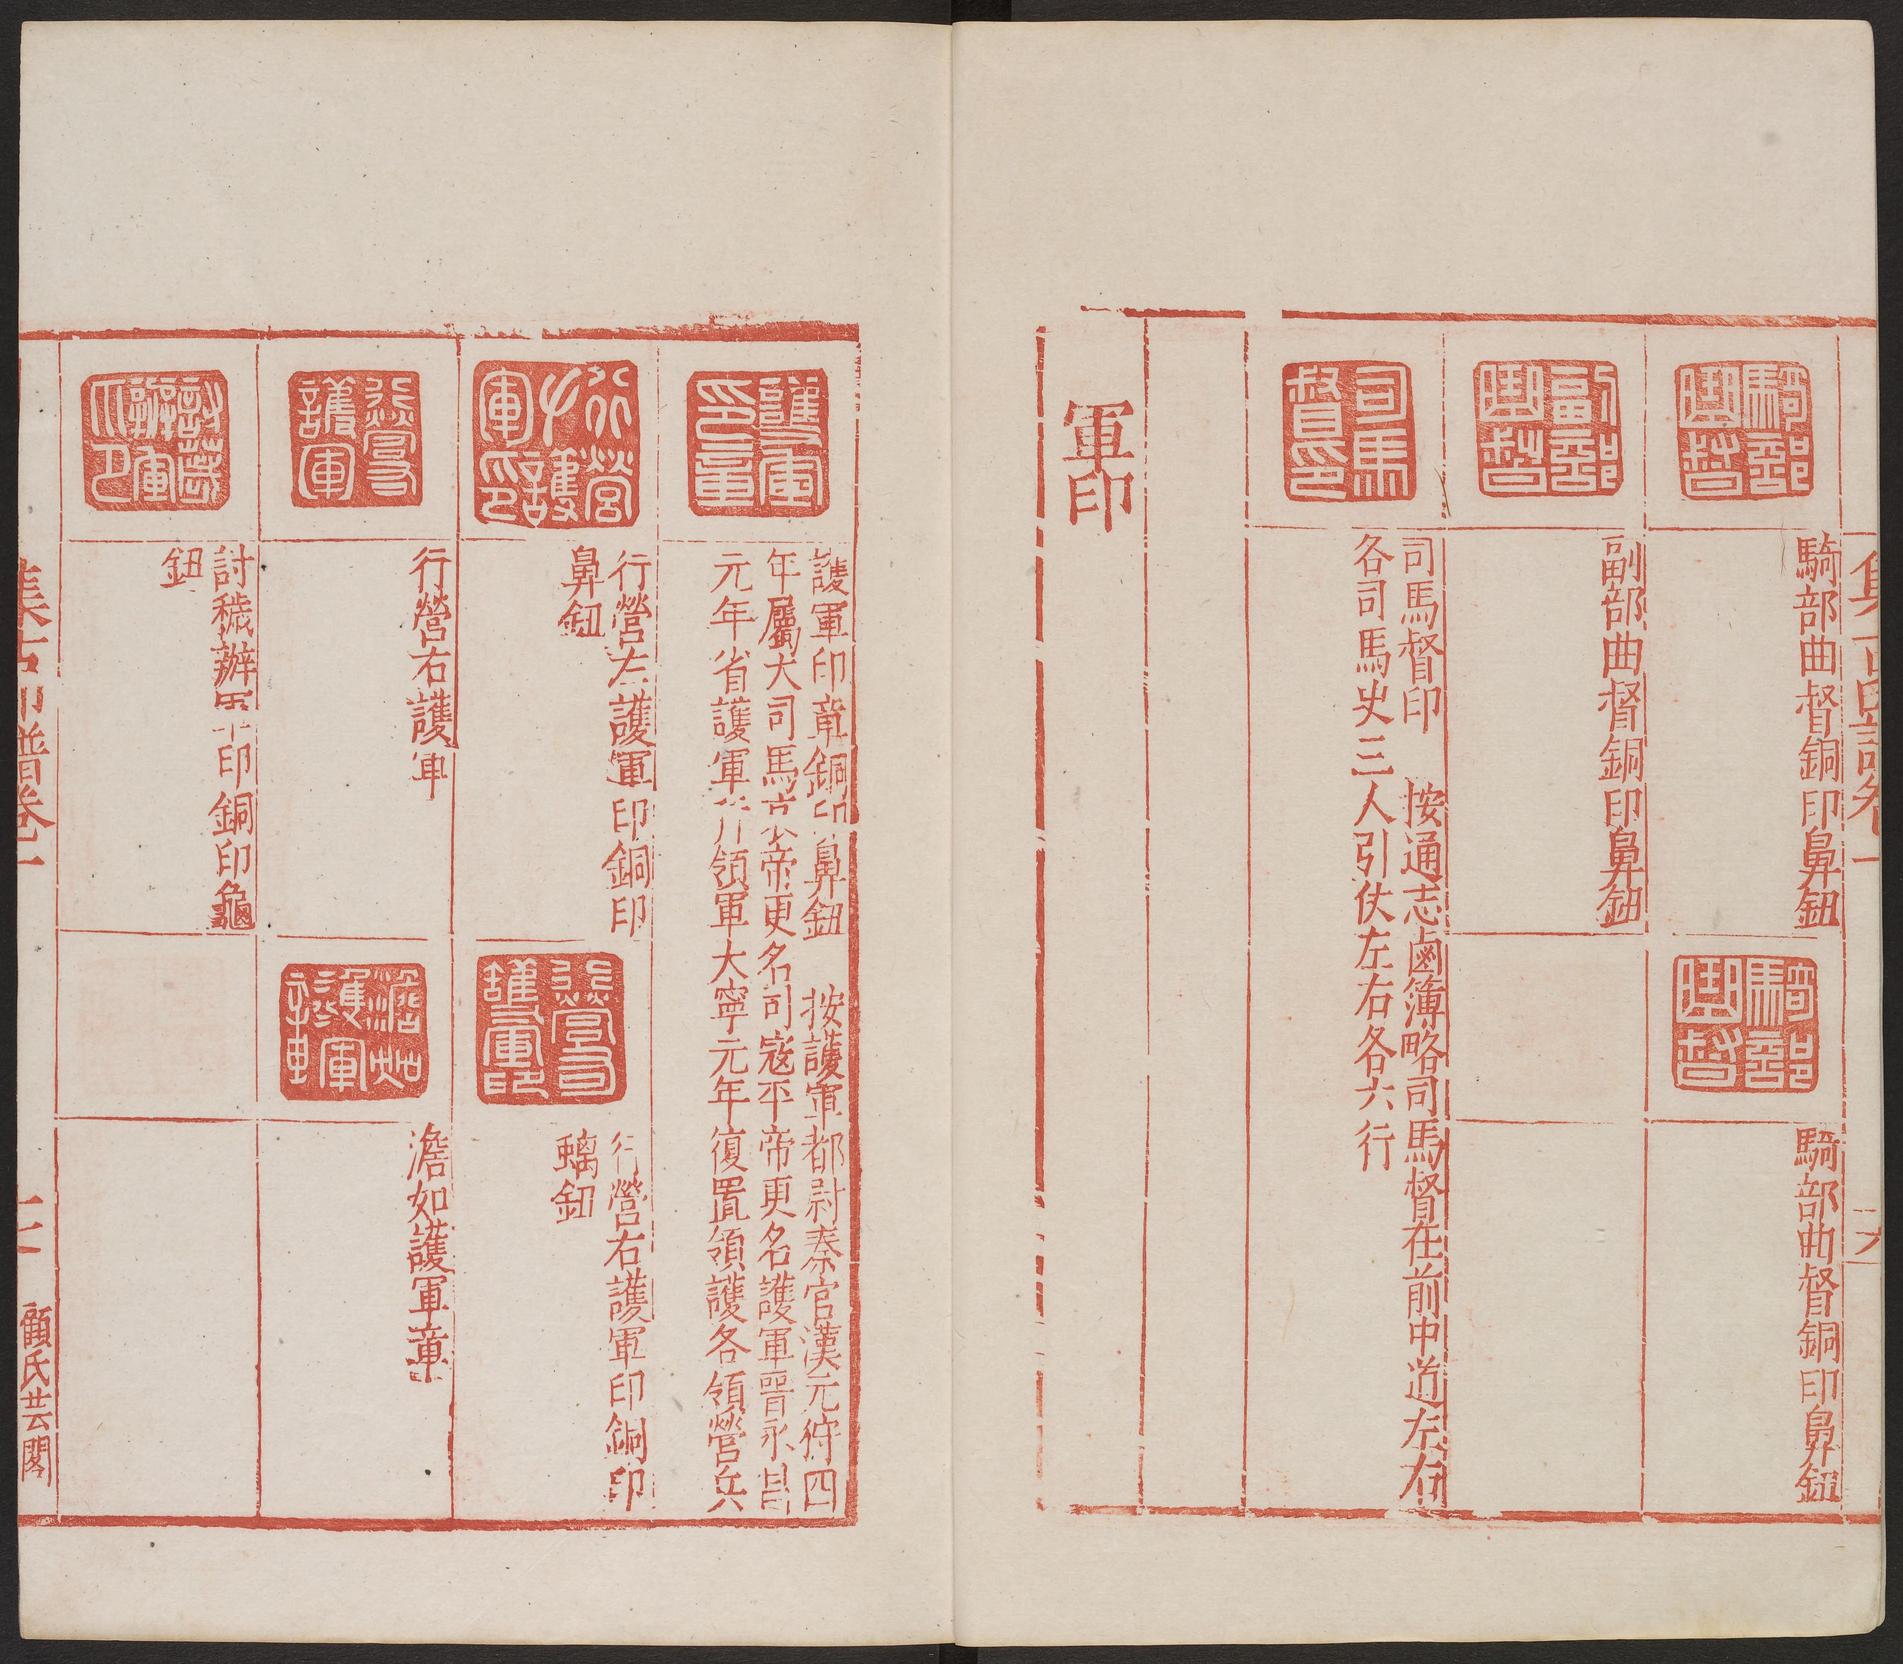 騎部曲督銅印鼻鈕
騎部曲督銅印鼻鈕
副部曲督銅印鼻鈕
司馬督印　按通志鹵簿略司馬督在前中道左右
各司馬史三人引仗左右各六行
軍印
護軍印章銅印鼻鈕　按護軍都尉秦官漢元狩四
年屬大司馬哀帝更名司寇平帝更名護軍晉永昌
元年省護軍并領軍大寧元年復置領護各領營兵
行營左護軍印銅印
鼻鈕
行營右護軍印銅印
螭鈕
行營右護軍
澹如護軍章
討穢辦軍印銅印龜
鈕
集古印譜卷二
顧氏芸閣